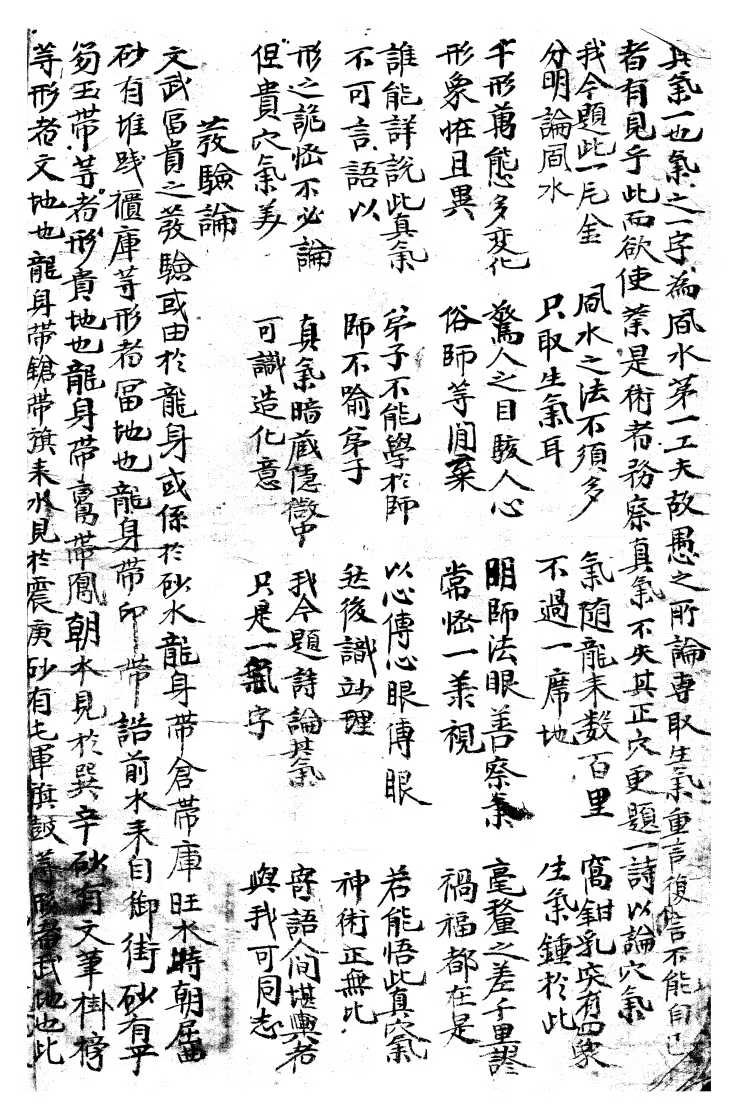 其氣一也氣之一字為風水第一工夫故愚之所論專取生氣重言復言不能自已
者有見乎此而欲使業是術者務察真氣不失其正穴更題一詩以論穴氣
我今題此一片金 風水之法不須多 氣随龍来数百里 窩鉗乳突有四象
分明論風水 只取生氣耳 不過一席地 生氣鍾於此
千形萬態多変化 驚人之目駭人心 明師法眼善察氣 毫釐之差千里謬
形象恠且異 俗師等閒棄 常恠一羕視 禍福都在是
誰能詳説此真氣 弟子不能學於師 以心傳心眼傳眼 若能悟此真穴氣
不可言語以 師不喻弟子 然後識妙理 神術正無比
形之詭恠不必論 真氣暗蔵隱微中 我今題詩論其氣 寄語人间堪輿者
但貴穴氣美 可識造化意 只是一氣字 與我可同志
發驗論
文武冨貴之發驗或由於龍身或係於砂水龍身帶倉帶庫旺水特朝屈曲
砂有堆践櫃庫等形者冨地也龍身帶印帶誥前水来自御街砂有平
笏玉帶等者形貴地也龍身帶鸞帶鳳朝水見於巽辛砂有文筆掛榜
等形者文地也龍身帶鎗帶旗来水見於震庚砂有屯軍旗鼓等形者武地也此